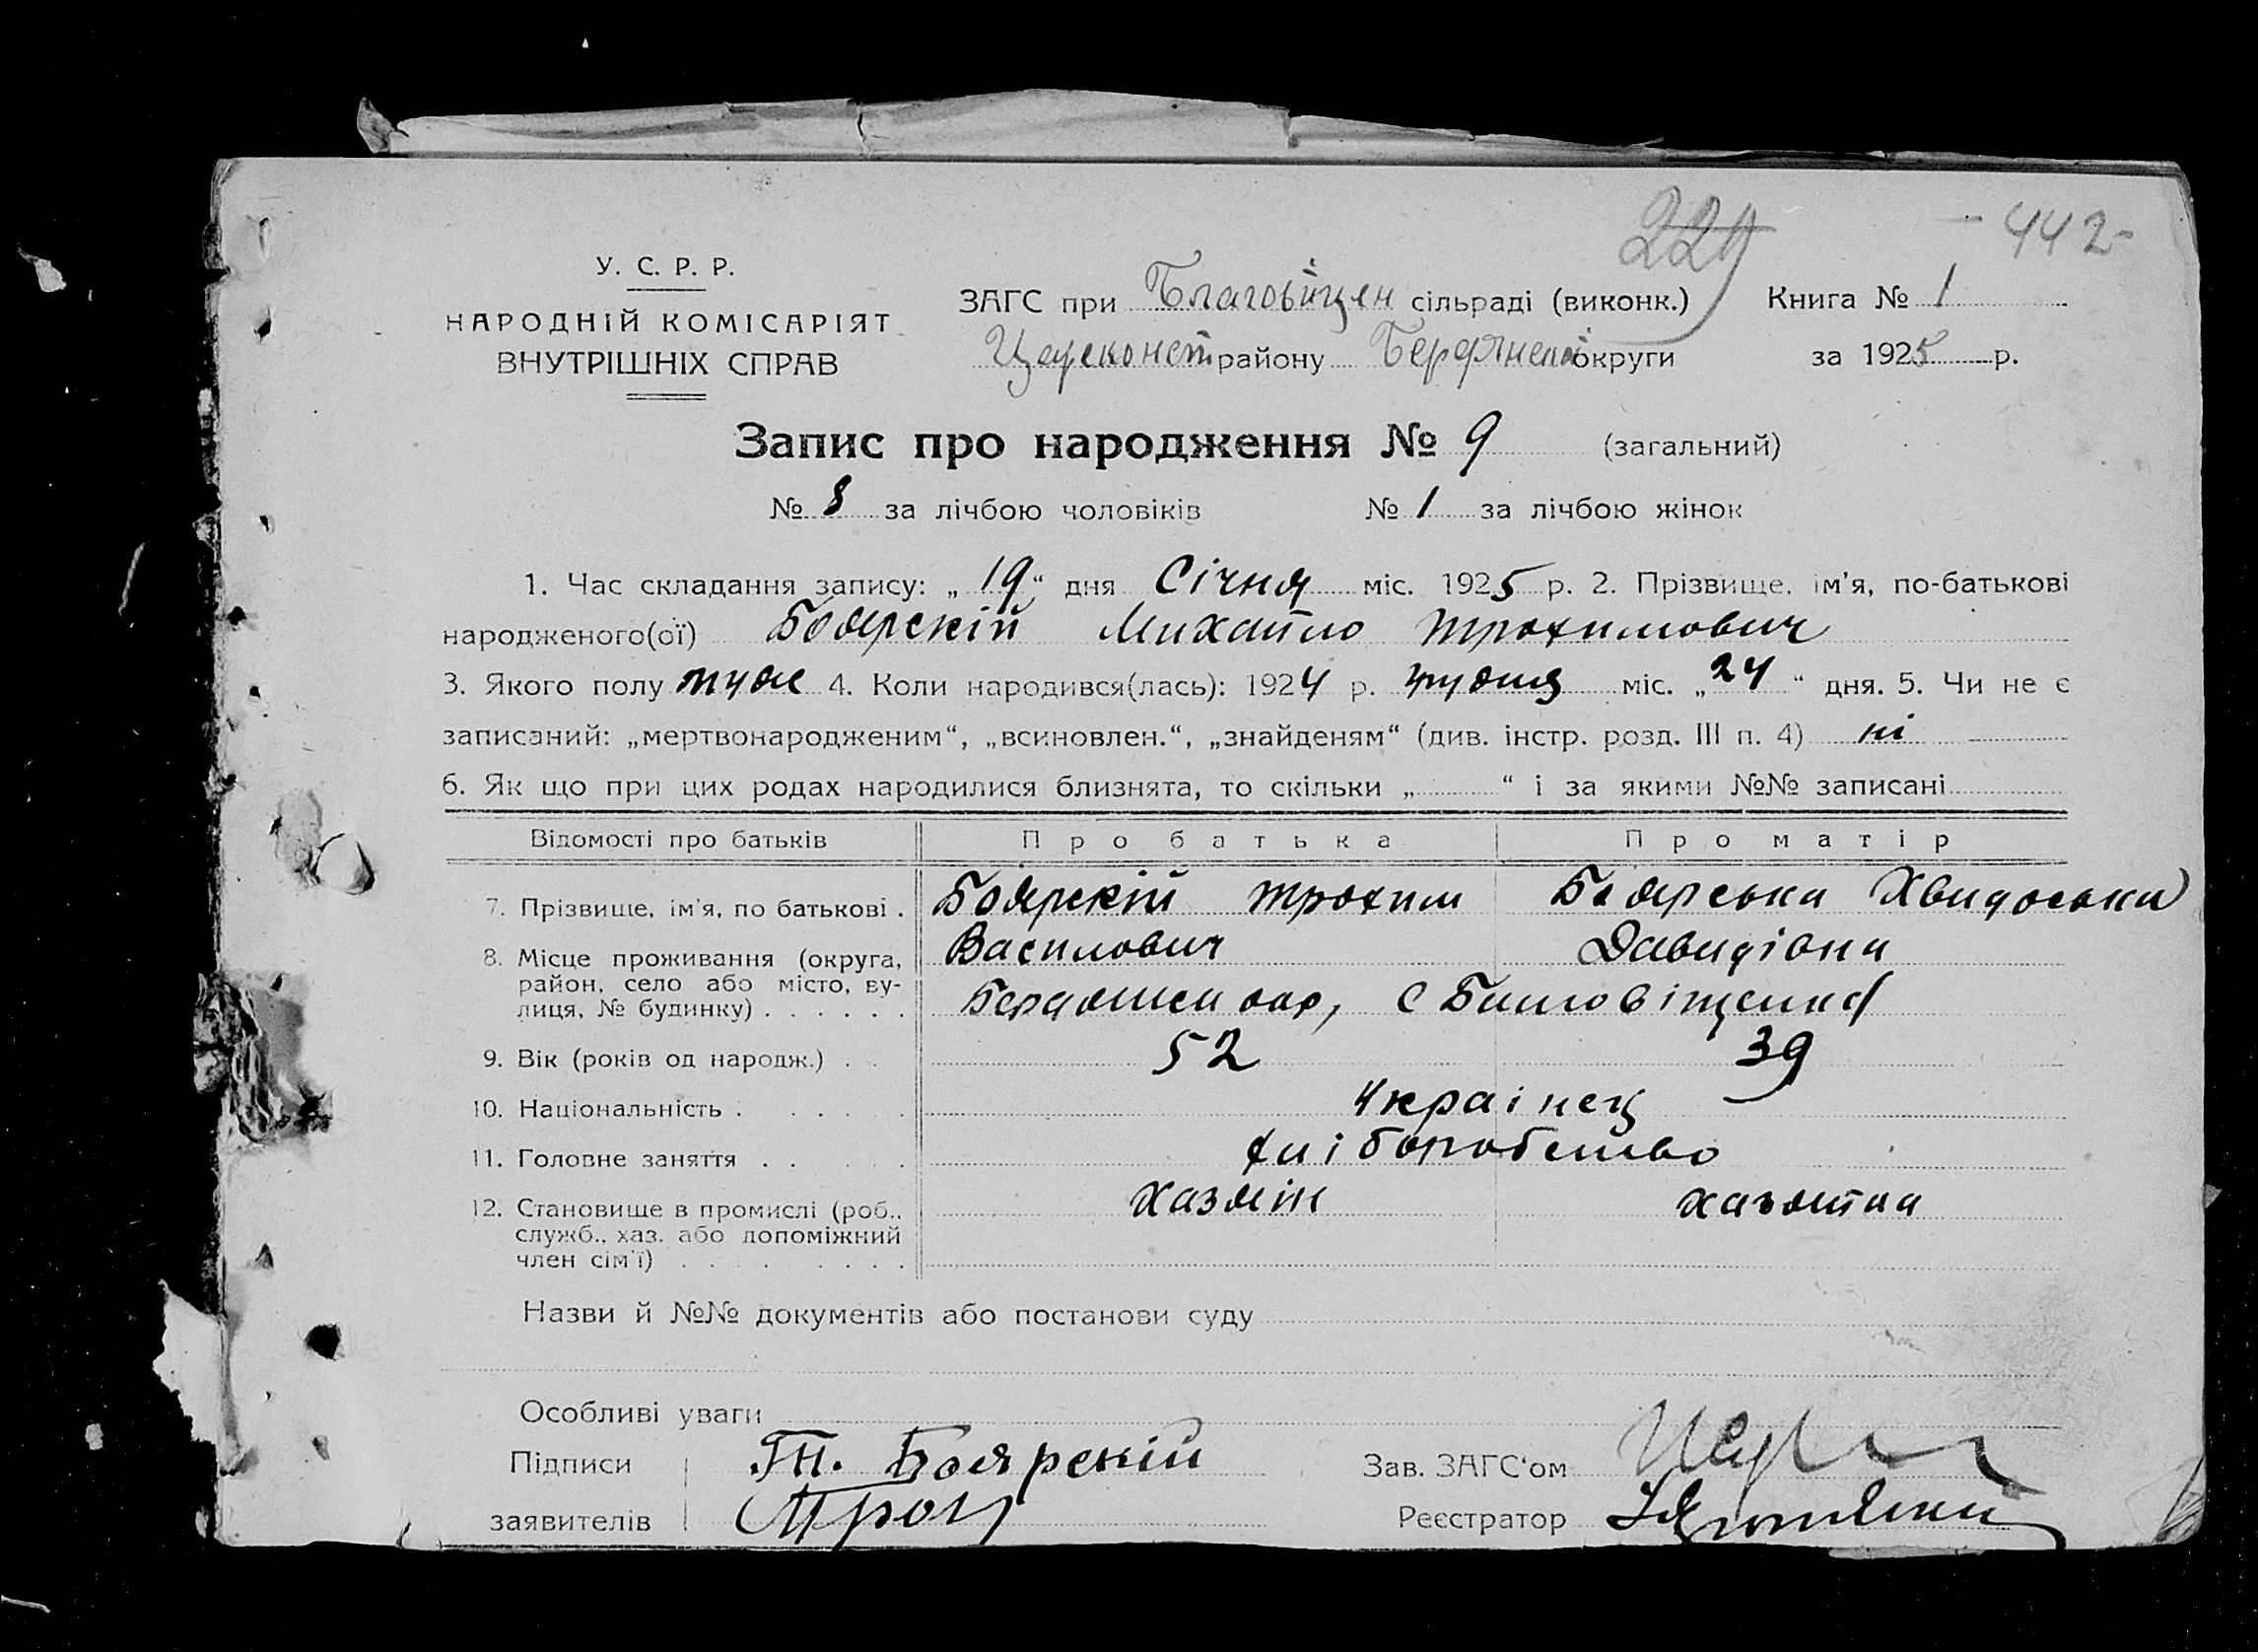 229 - 442 -
У. С. Р. Р.
НАРОДНІЙ КОМІСАРІЯТ
ВНУТРІШНІХ СПРАВ
ЗАГС при Благовіщен сільраді (виконк.) Книга № 1
Цареконст району Бердянской округи за 1925 р.
Запис про народження № 9 (загальний)
№ 8 за лічбою чоловіків № 1 за лічбою жінок
1. Час складання запису: „ 19 “ дня Січня міс. 1925 р. 2. Прізвище, ім'я, по-батькові
народженого(ої) Боярскій Михайло Трохимович
3. Якого полу муж 4. Коли народився(лась): 1924 р. грудня міс. „ 24 “ дня. 5. Чи не є
записаний: „мертвонародженим“, „всиновлен.“, „знайденям“ (див. інстр. розд. III п. 4) ні
6. Як що при цих родах народилися близнята, то скільки „ “ і за якими №№ записані
Відомості про батьків Про батька Про матір
7. Прізвище, ім'я, по батькові . Боярскій Трохим Боярська Хвидоська
Василович Давидівна
8. Місце проживання (округа,
район, село або місто, ву-
лиця, № будинку) . . . . . . Бердянск окр, С Благовіщенка
9. Вік (років од народж.) . . 52 39
10. Національність . . . . . Украінец
11. Головне заняття . . . . . хліборобство
12. Становище в промислі (роб., Хазяін хазяйка
служб., хаз. або допоміжний
член сім'ї) . . . . . . . .
Назви й №№ документів або постанови суду
Особливі уваги
Підписи Т. Боярскій Зав. ЗАГС'ом
заявителів Реєстратор